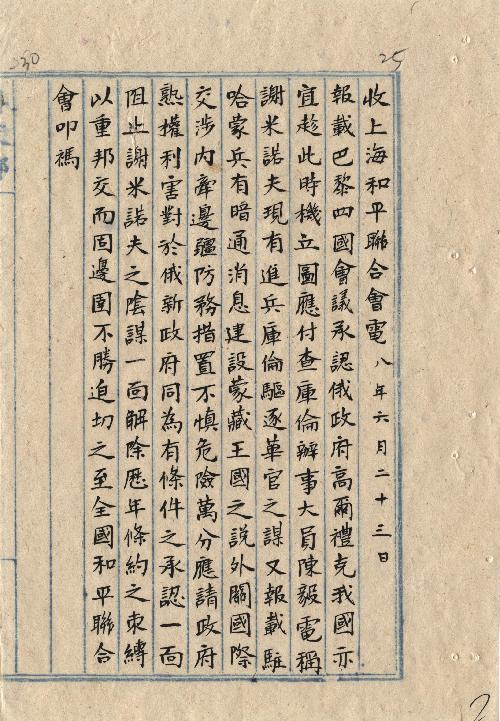 230
25
收上海和平聯合會電 八年六月二十三日
報載巴黎四國會議承認俄政府高爾禮克我國亦
宜趁此時機立圖應付查庫倫辦事大員陳毅電稱
謝米諾夫現有進兵庫倫驅逐華官之謀又報載駐
哈蒙兵有暗通消息建設蒙藏王國之說外關國際
交涉内牽邊疆防務措置不慎危險萬分應請政府
熟權利害對於俄新政府同為有條件之承認一面
阻止謝米諾夫之陰謀一面解除歷年條約之束縛
以重邦交而固邊圉不勝迫切之至全國和平聯合
會叩禡